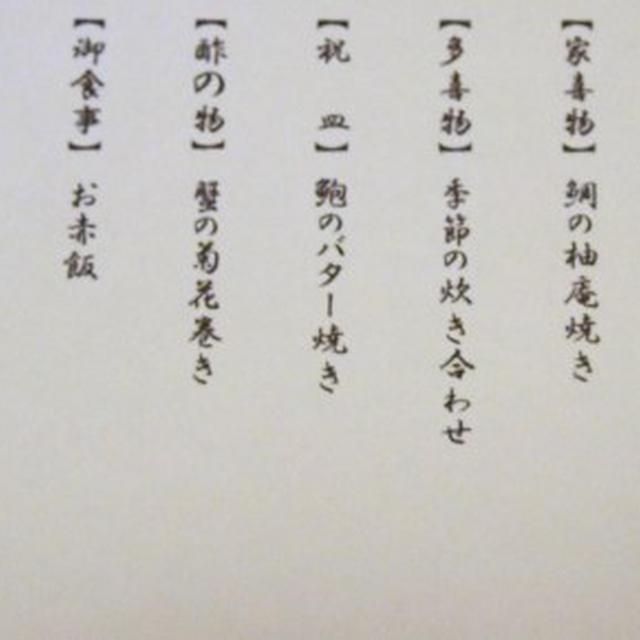 【家喜物】鯛の柚庵焼き
【多喜物】季節の炊き合わせ
【祝 皿】鮑のバター焼き
【酢の物】蟹の菊花巻き
【御食事】お赤飯